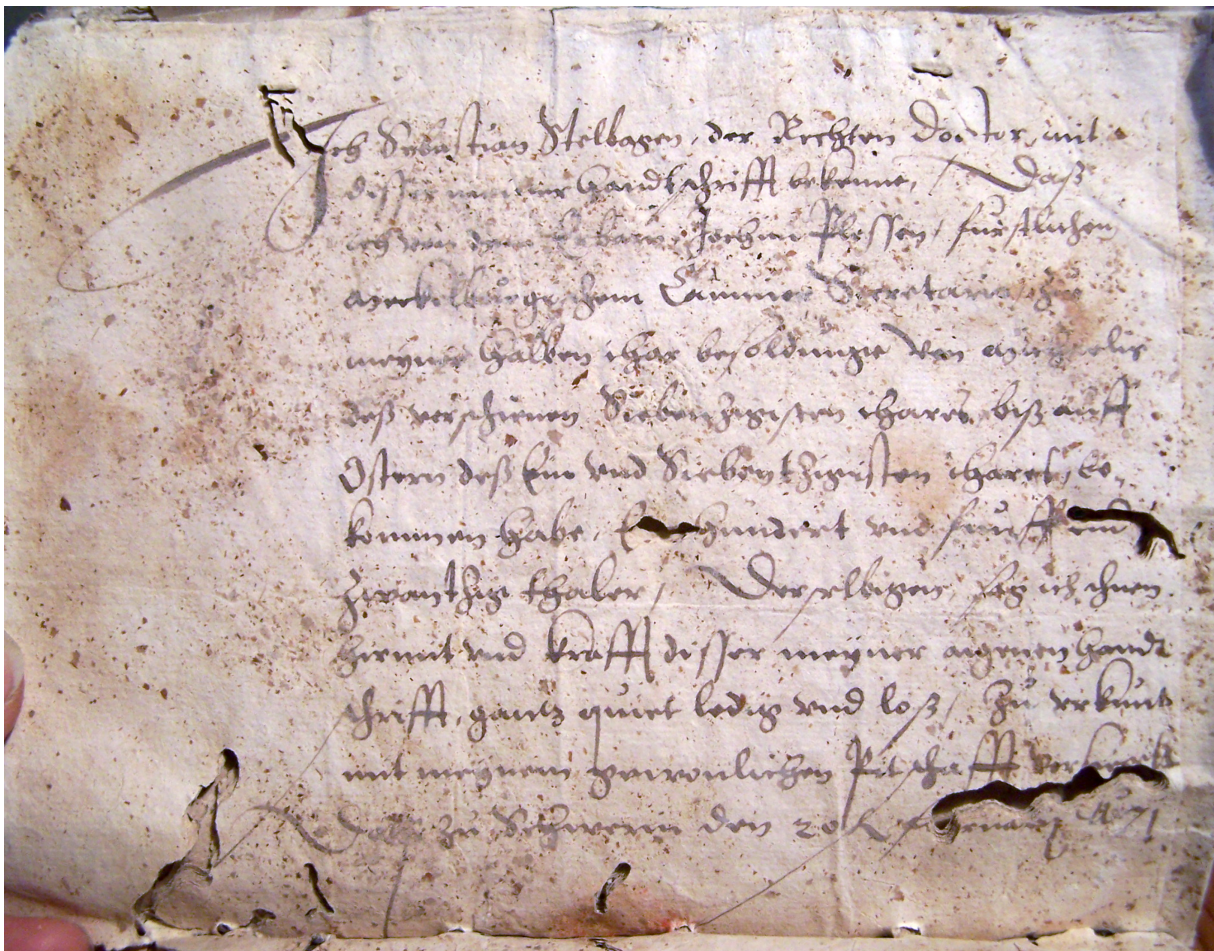 Ich Sebastian Stelbagen, der Rechten Doctor, mit
disser meiner handtschrifft bekenne, Daß
ich von dem Erbarn Jochim Plessen, fürstlichen
Meckelburgischem Cammer Secretario,
meyner halben ihar besoldunge von Michaelis
deß verschienen Siebenzigisten ihares, biß auff
Ostern deß Ein vnd Siebentzigisten ihares, be-
kommen habe, hundert vnd funff vnd
zwantzig thaler, Derselbigen sag ich ihnen
hiemit vnd krafft disser meyner aigenen handt
schrifft, gantz quiet ledig vnd loß, Zu vrkunt
mit meynem gewonlichen Pitschafft
Datum zu Schwerin den 20 February A° 71